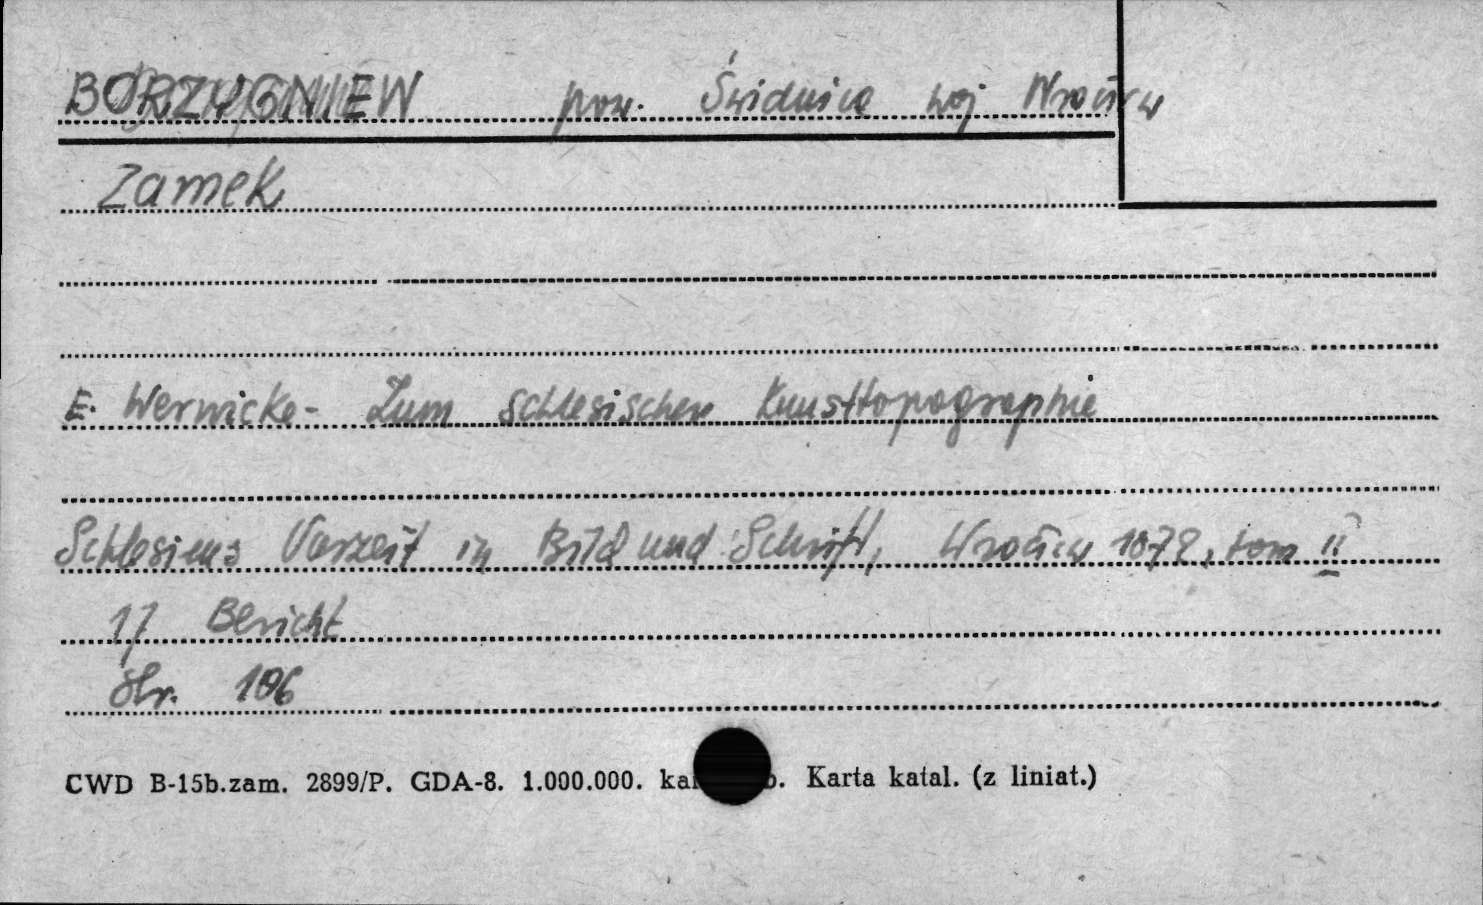 BORZYGNIEW pow. Świdnica woj Wrocław
Zamek
E. Wernicke - Zum schlesischen Kunsttopographie
Schlesiens Vorzeit in Bild und Schrift, Wrocław 1872, tom II
17 Bericht
str. 106
CWD B-15b.zam. 2899/P. GDA-8. 1.000.000. Karta katal. (z liniat.)